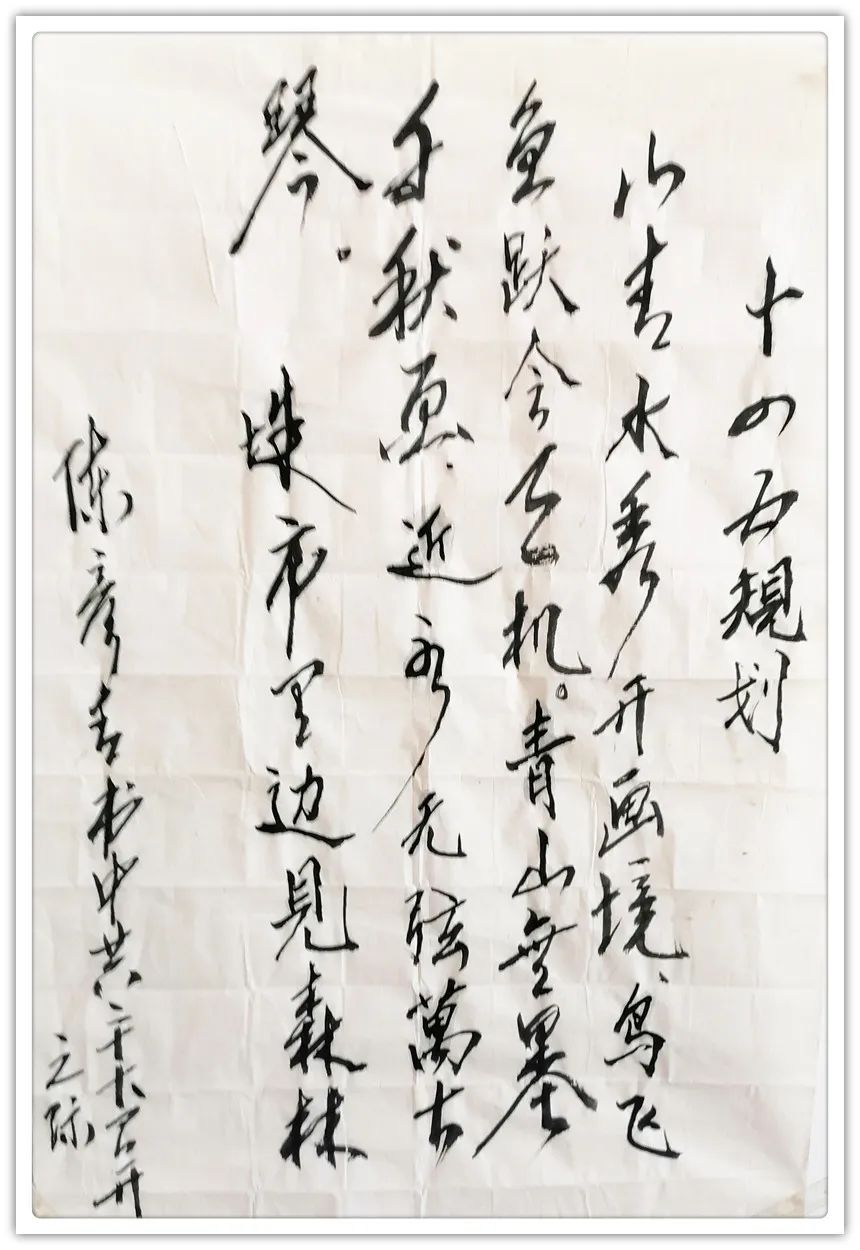 十四五规划
山青水秀开画境、鸟飞
鱼跃含机。青山無墨
千秋画、近水无弦萬古
琴。 城市里边見森林
陈彦吉书中共二十大召开
之际